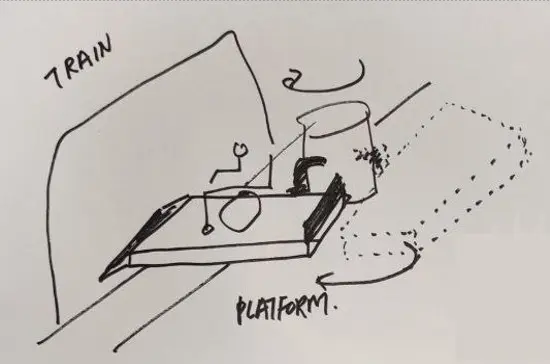 TRAIN
PLATFORM.